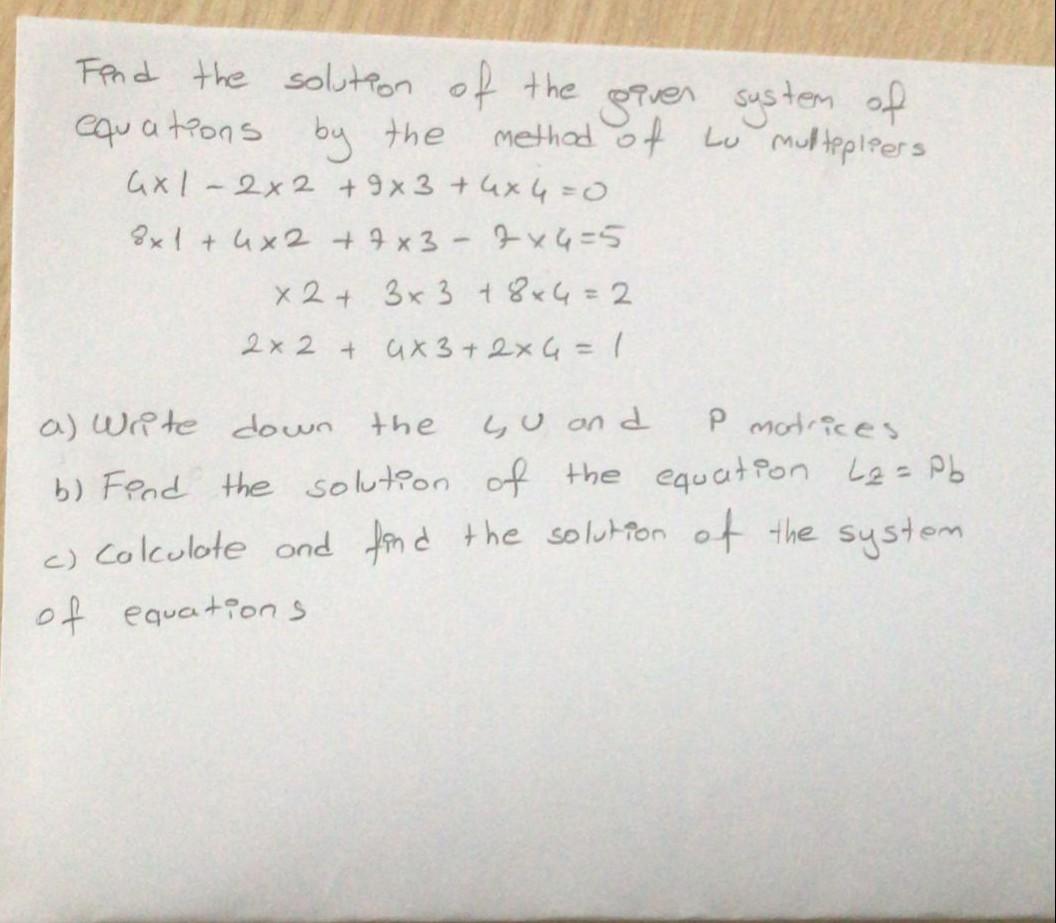 Find the solution of the given system of
equations by the method of LU multipliers
4x1 - 2x2 + 9x3 + 4x4 = 0
8x1 + 4x2 + 7x3 - 7x4 = 5
x2 + 3x3 + 8x4 = 2
2x2 + 4x3 + 2x4 = 1
a) Write down the L, U and P matrices
b) Find the solution of the equation Lz = Pb
c) Calculate and find the solution of the system
of equations